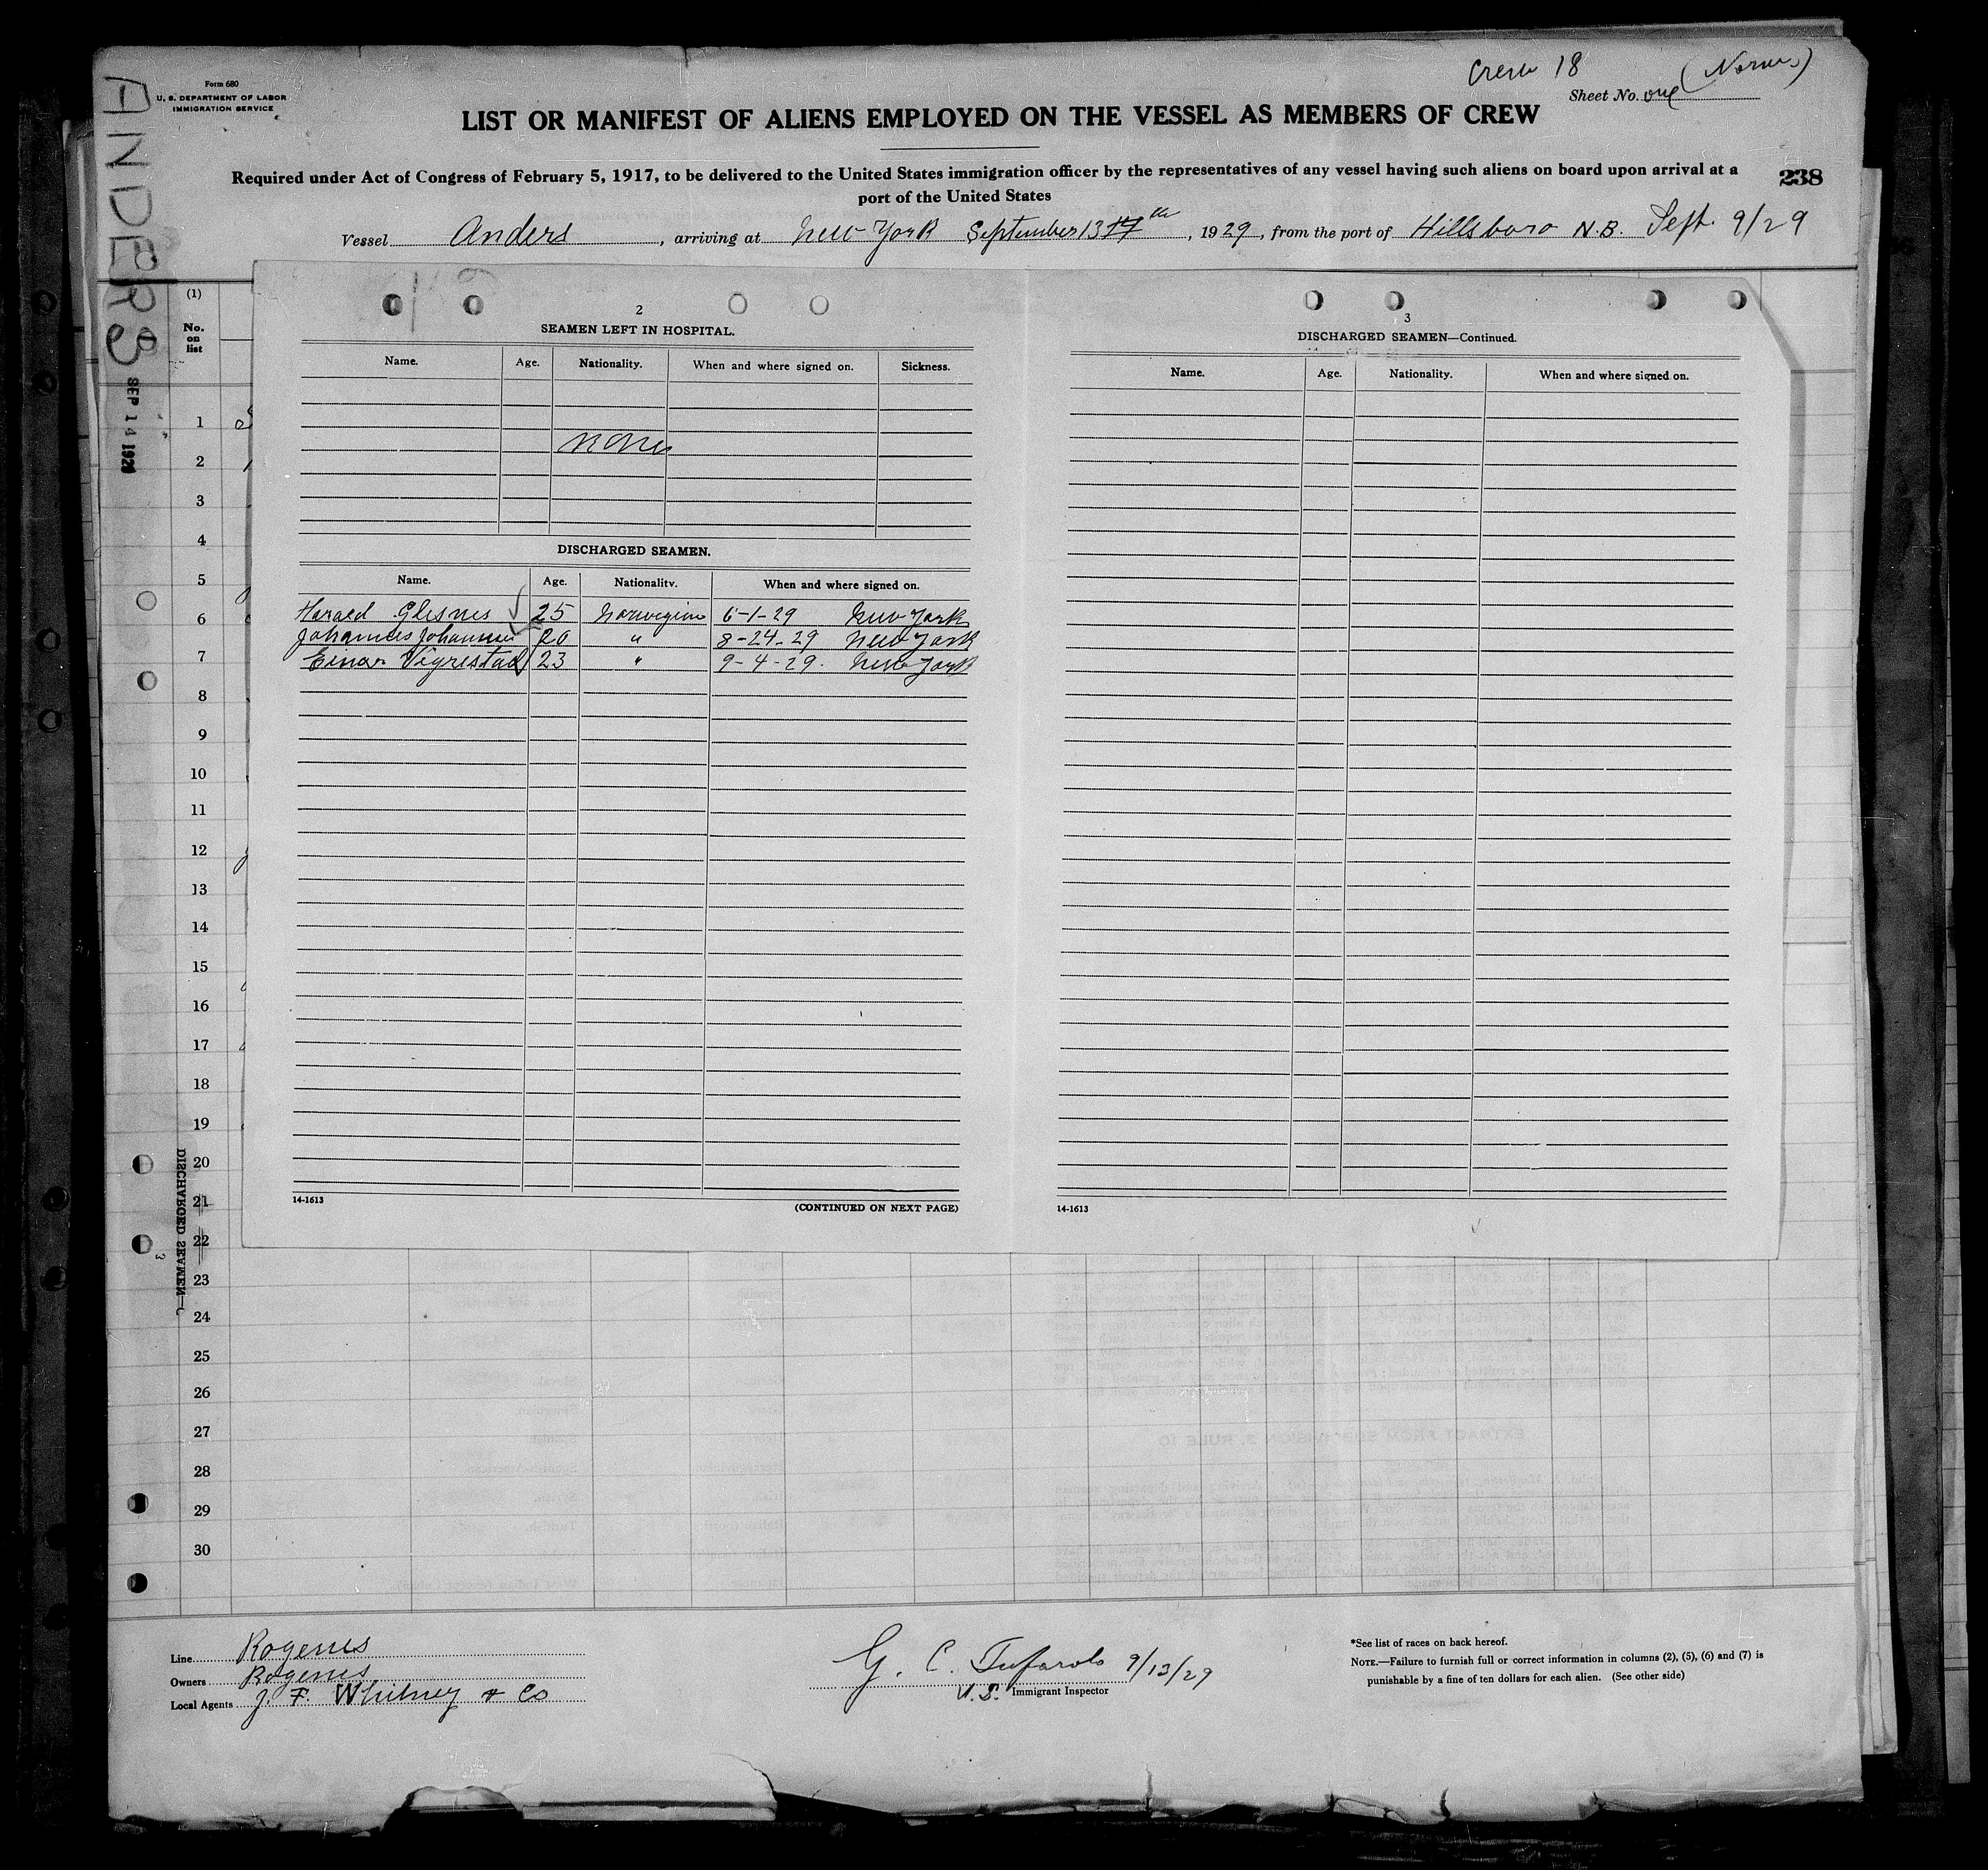 Form 680
U. S. DEPARTMENT OF LABOR
IMMIGRATION SERVICE
Crew 18
Sheet No. one
LIST OR MANIFEST OF ALIENS EMPLOYED ON THE VESSEL AS MEMBERS OF CREW
Required under Act of Congress of February 5, 1917, to be delivered to the United States immigration officer by the representatives of any vessel having such aliens on board upon arrival at a
port of the United States
238
Vessel Anders, arriving at New York September 13 th, 1929, from the port of Hillsboro N.B. Sept. 9/29
ANDERS
SEP 14 1929
(1)
No.
on
list
1
2
3
4
5
6
7
8
9
10
11
12
13
14
15
16
17
18
19
20
21
22
23
24
25
26
27
28
29
30
DISCHARGED SEAMEN—C
3
2
SEAMEN LEFT IN HOSPITAL.
Name. Age. Nationality. When and where signed on. Sickness.
None
DISCHARGED SEAMEN.
Name. Age. Nationality. When and where signed on.
Harald Glesnes 25 Norwegian 6-1-29 New York
Johannes Johannsen 20 " 8-24-29 New York
Einar Vigrestad 23 " 9-4-29. New York
14-1613
(CONTINUED ON NEXT PAGE)
3
DISCHARGED SEAMEN—Continued.
Name. Age. Nationality. When and where signed on.
14-1613
EXTRACT FROM SUBDIVISION 2, RULE 10
Line Rogenes
Owners Rogenes
Local Agents J. F. Whitney & Co
G. C. Tufarolo 9/13/29
U.S. Immigrant Inspector
*See list of races on back hereof.
NOTE.—Failure to furnish full or correct information in columns (2), (5), (6) and (7) is
punishable by a fine of ten dollars for each alien. (See other side)